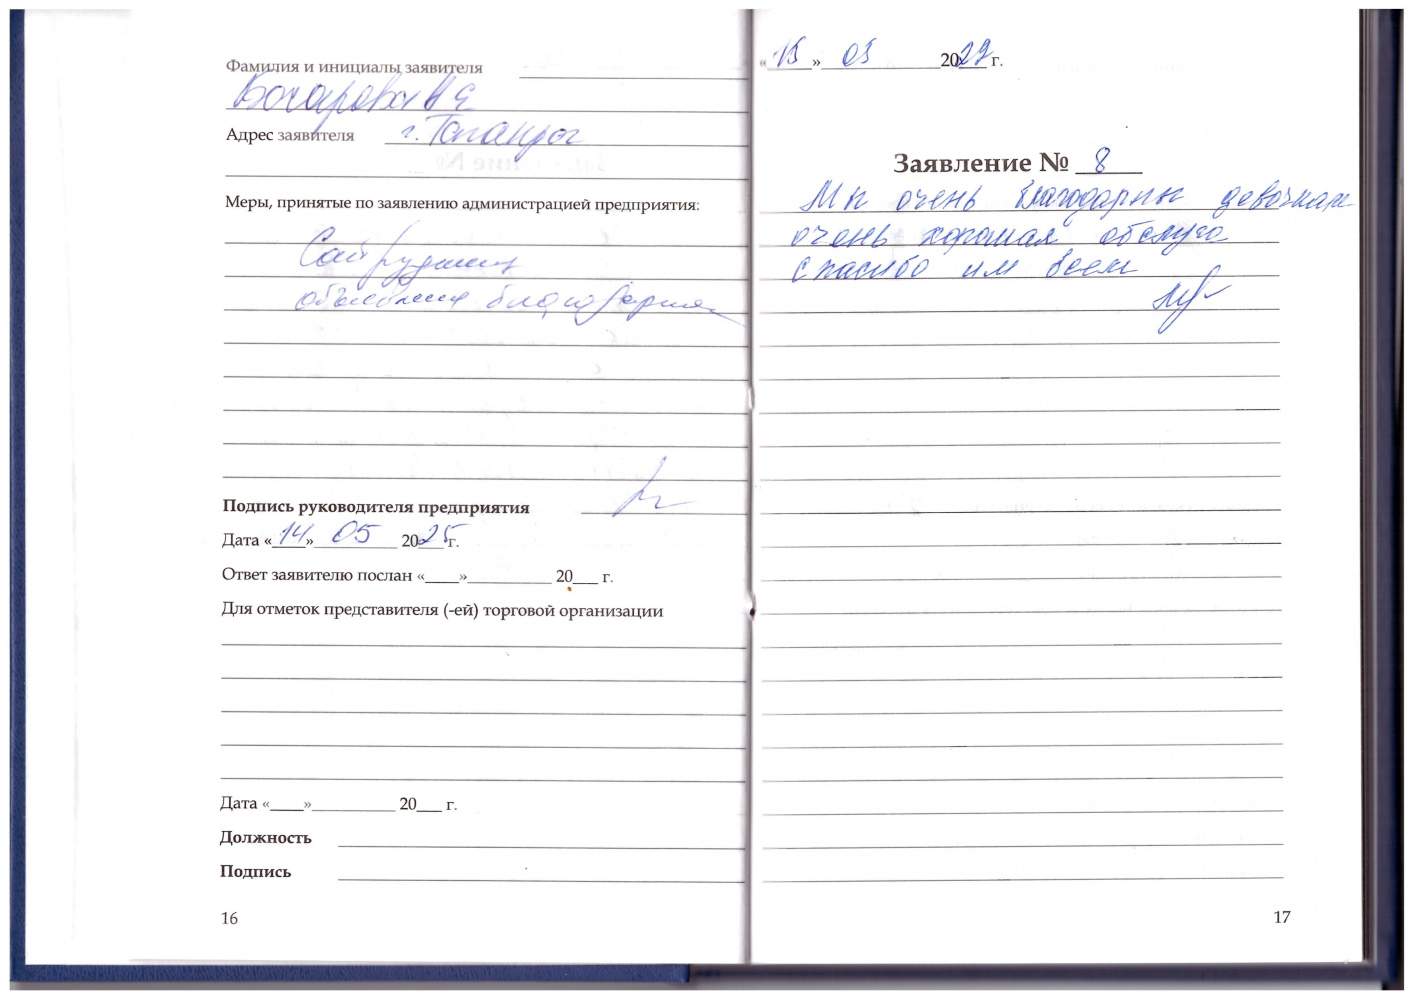 Фамилия и инициалы заявителя
Бочарова Н Е
Адрес заявителя г. Таганрог
Меры, принятые по заявлению администрацией предприятия:
объявлена благодарность
Подпись руководителя предприятия
Дата «14» 05 2025 г.
Ответ заявителю послан «____»__________ 20___ г.
Для отметок представителя (-ей) торговой организации
Дата «____»__________ 20___ г.
Должность
Подпись
16
«15» 03 20 г.
Заявление № 8
Мы очень благодарны девочкам
очень хорошая обслуга
спасибо им всем
17